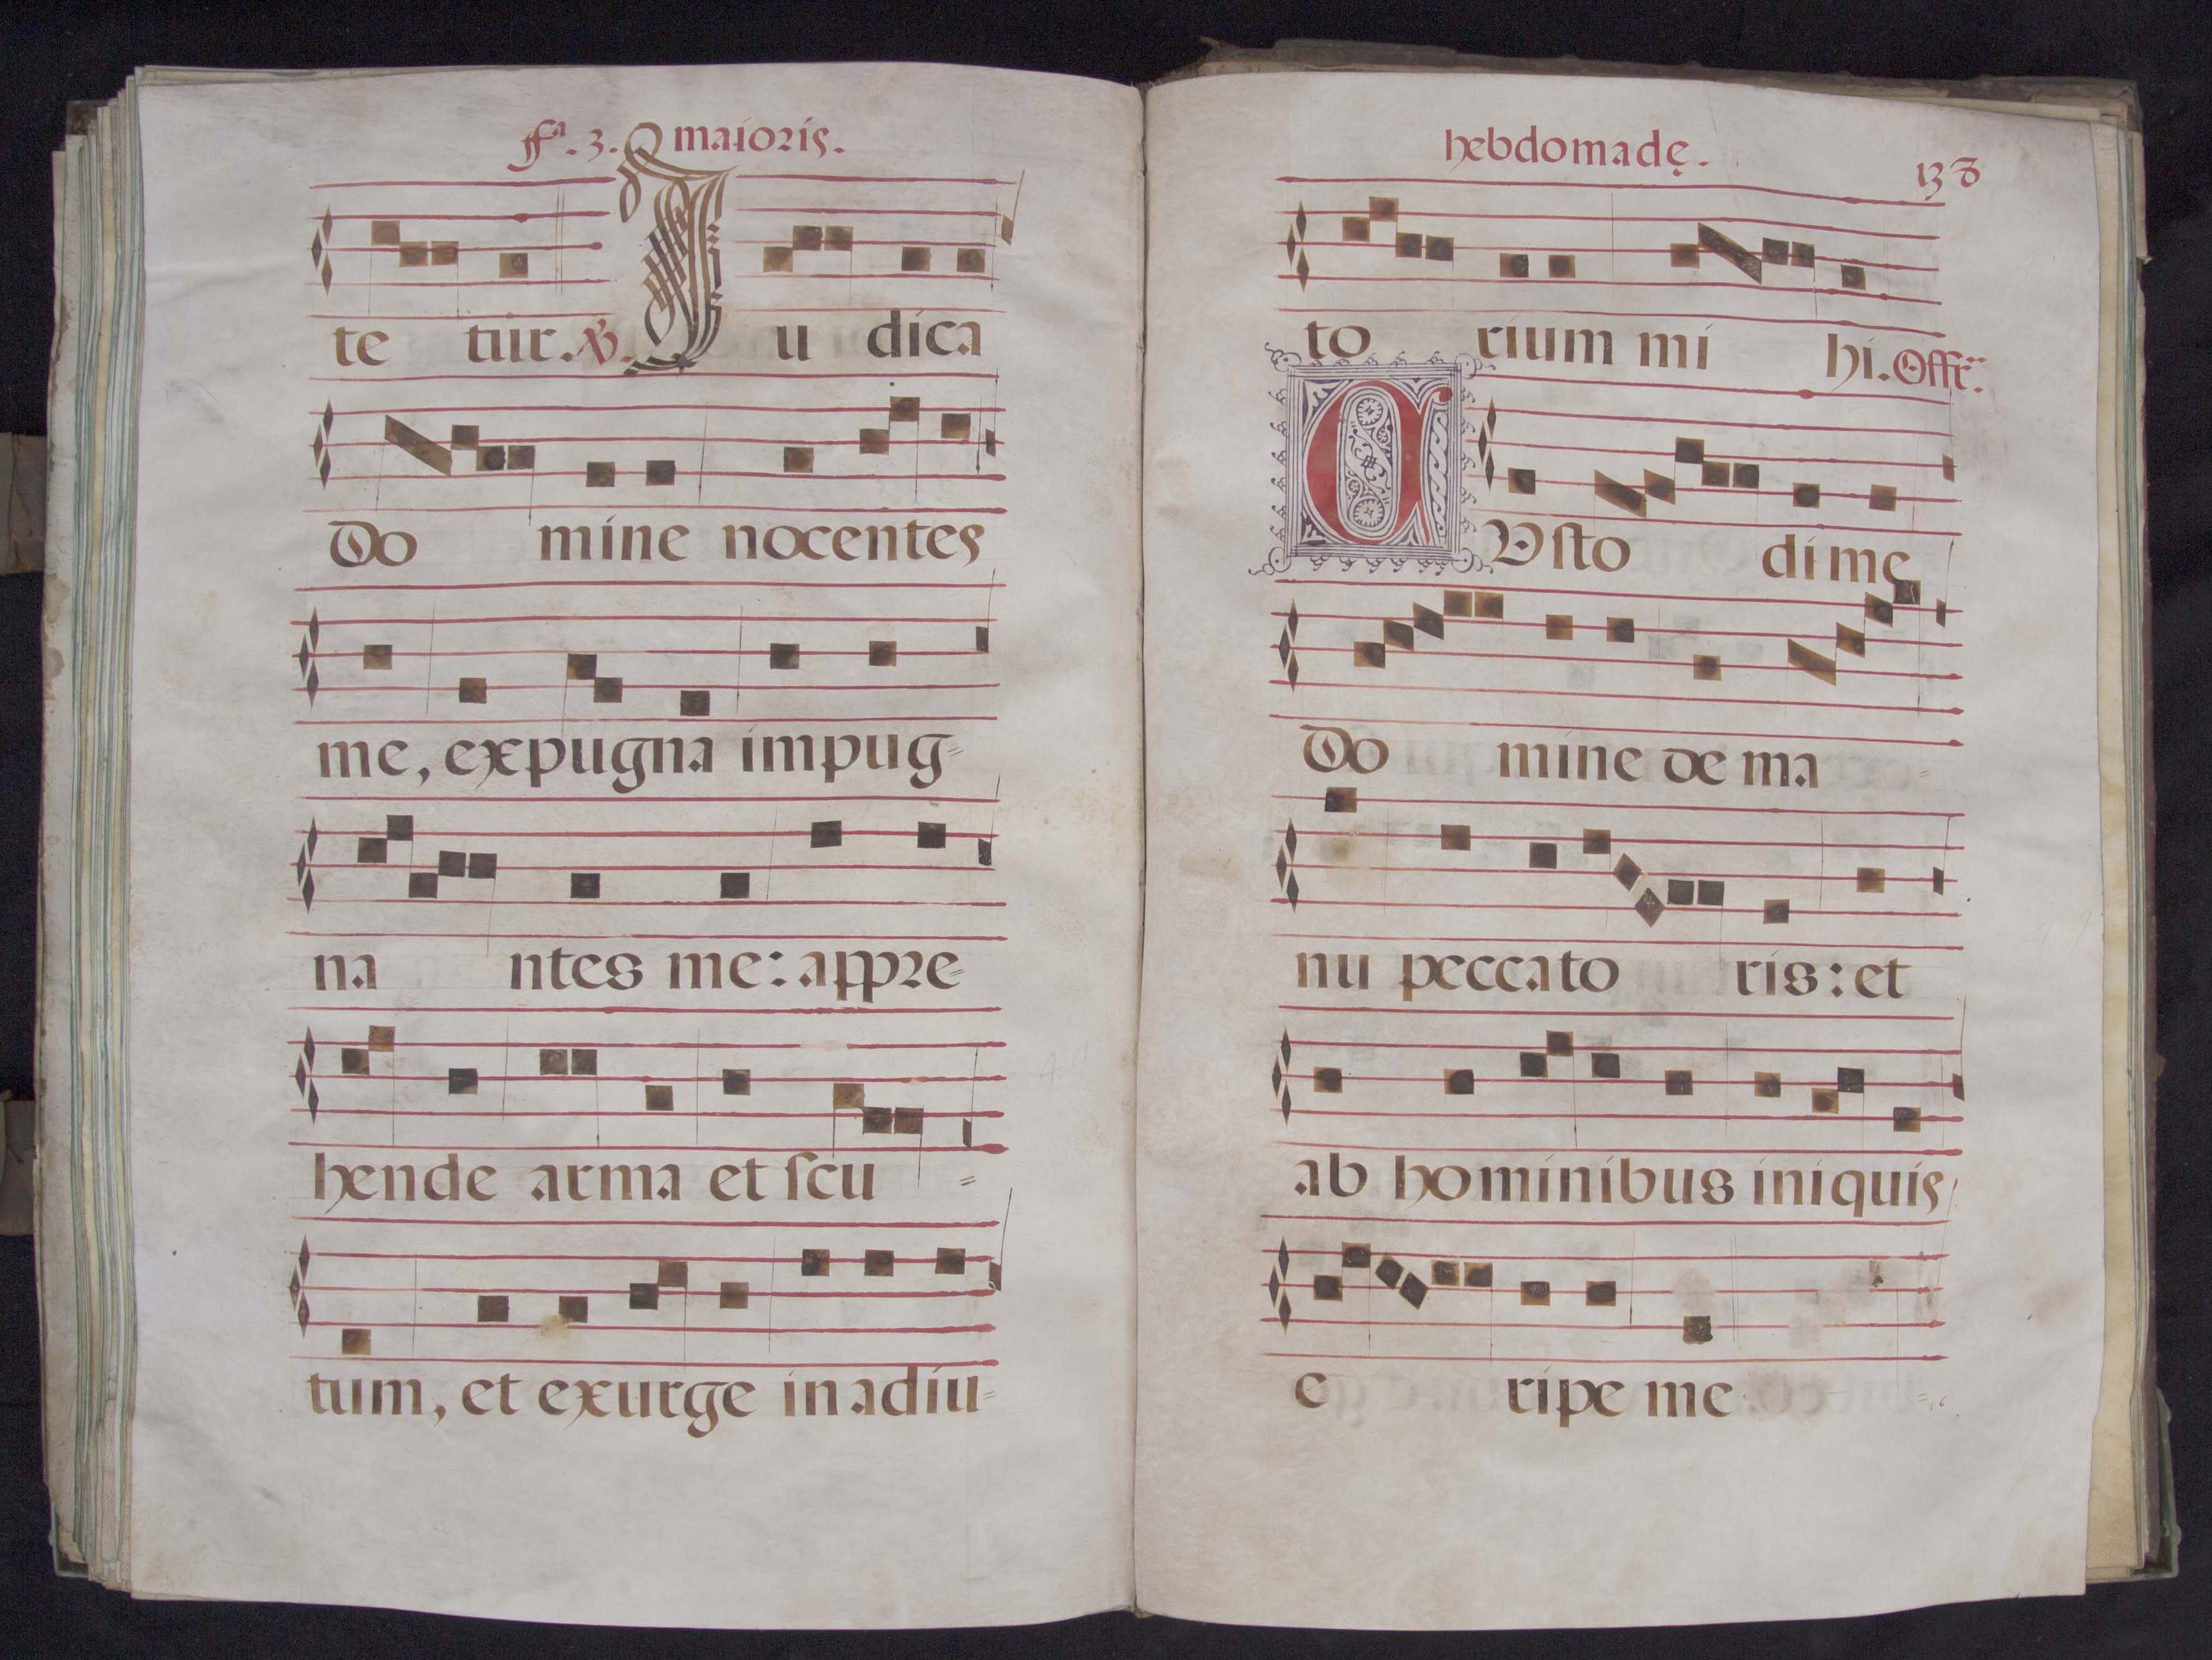 fª. 3. maioris.
te tur. ℣. Iu dica
Do mine nocentes
me, expugna impug=
na ntes me: appre=
hende arma et scu =
tum, et exurge in adiu=
hebdomadę.
138
to rium mi hi. Offr̄.
CVsto di me
Do mine de ma =
nu peccato ris: et
ab hominibus iniquis
e ripe me =